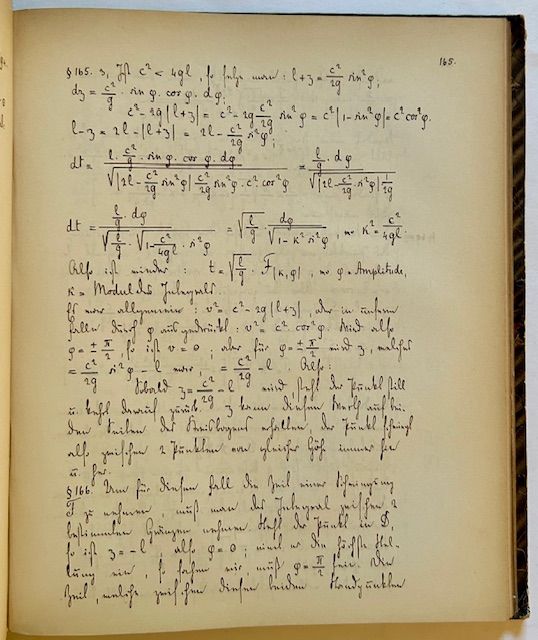 165.
§ 165. 3, Ist c² < 4gl, so setze man: l+z = c²/2g sin²φ;
dz = c²/g · sin φ. cos φ. dφ,
c² - 2g(l+z) = c² - 2g c²/2g sin²φ = c²(1-sin²φ) = c² cos²φ.
l-z = 2l-(l+z) = 2l - c²/2g sin²φ;
dt = l · c²/g · sin φ. cos φ. dφ / √(2l - c²/2g sin²φ) c²/2g sin²φ · c² · cos²φ = l/g · dφ / √(2l - c²/2g · sin²φ) 1/2g
dt = l/g · dφ / √l/g · √1 - c²/4gl · sin²φ = √l/g · dφ / √1 - κ² sin²φ, wo κ² = c²/4gl.
Also ist wieder: t = √l/g · F(κ, φ), wo φ = Amplitude,
κ = Modul des Integrals.
Es war allgemein: v² = c² - 2g(l+z), oder in unserm
Falle durch φ ausgedrückt: v² = c² cos²φ. Wird also
φ = ± π/2, so ist v = 0; aber für φ = ± π/2 wird z, welches
= c²/2g sin²φ - l war, = c²/2g - l. Also:
Sobald z = c²/2g - l wird steht der Punkt still
u. kehrt darauf zurück. z kann diesen Werth auf bei-
den Seiten des Kreisbogens erhalten, der Punkt schwingt
also zwischen 2 Punkten von gleicher Höhe immer hin
u. her.
§ 166. Um für diesen Fall die Zeit einer Schwingung
T zu nehmen, muß man das Integral zwischen 2
bestimmten Gränzen nehmen. Steht der Punkt in D,
so ist z = -l, also φ = 0; nimmt er die höchste Stel-
lung ein, so sahen wir, muß φ = π/2 sein. Die
Zeit, welche zwischen diesen beiden Standpunkten